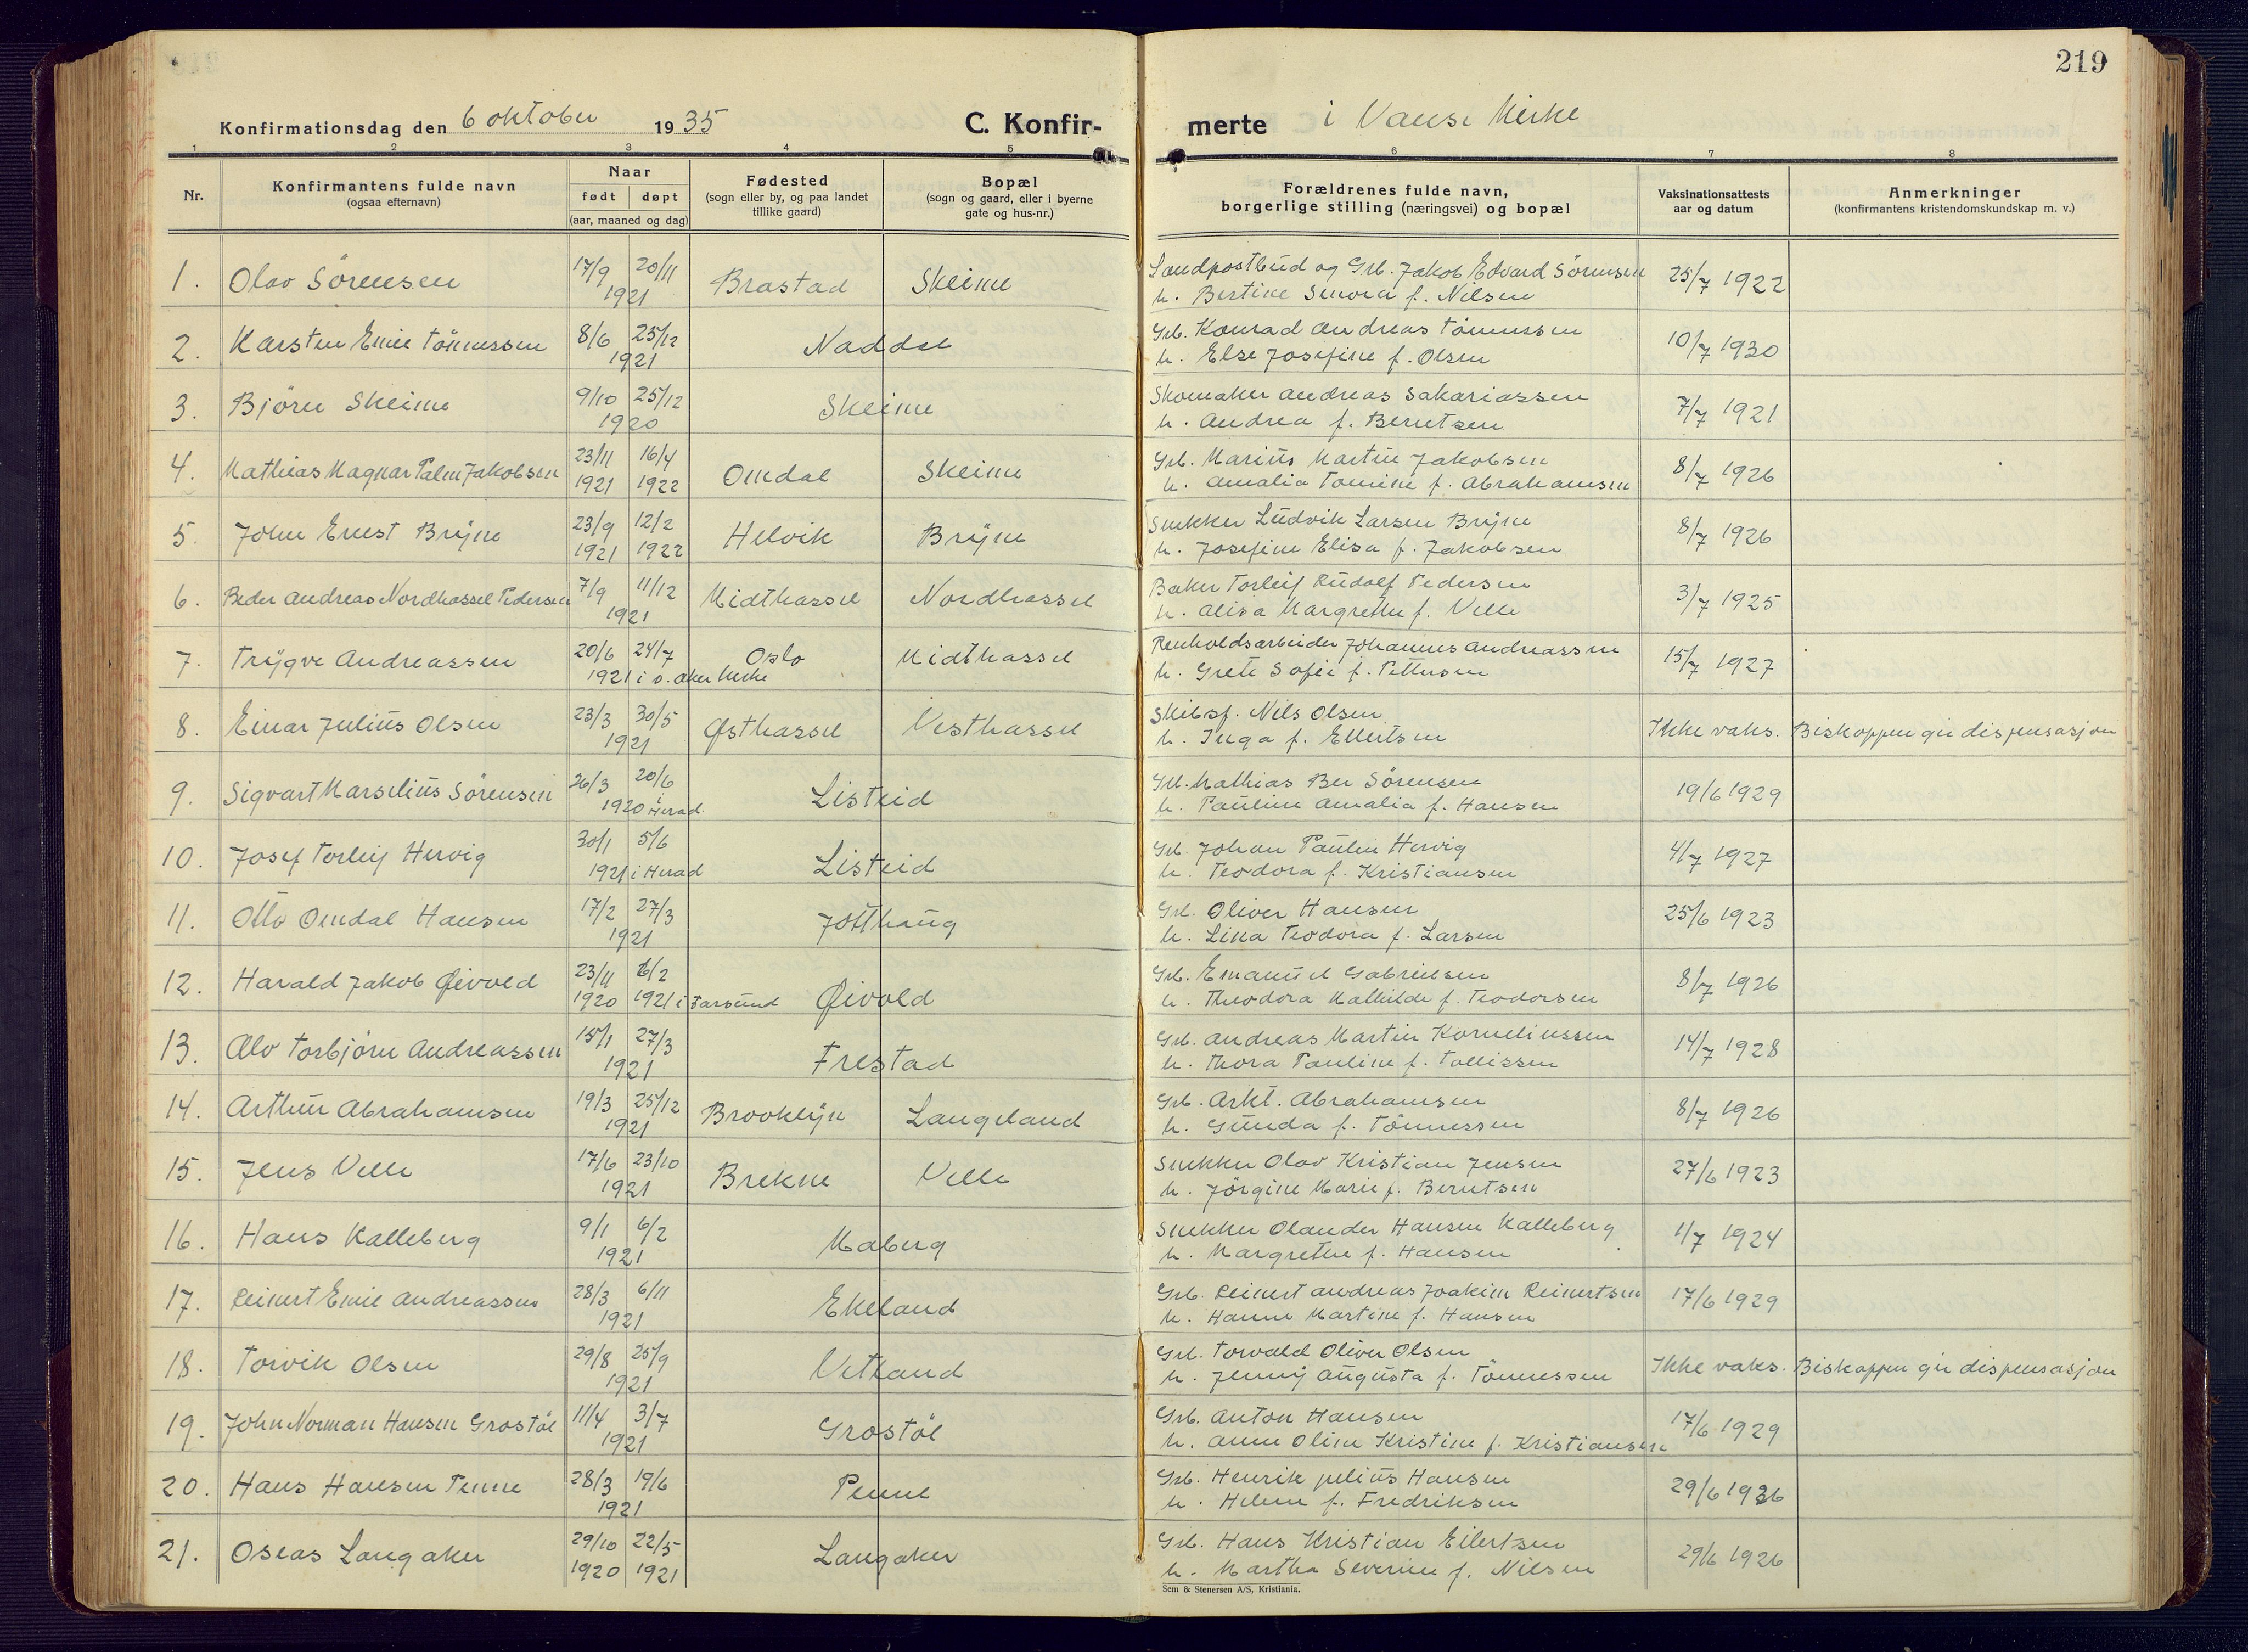 219
Konfirmationsdag den 6 oktober 1935 C. Konfir- merte i Vanse kirke
1 2 3 4 5 6 7 8
Nr.
Konfirmantens fulde navn
(ogsaa efternavn)
Naar
født døpt
(aar, maaned og dag)
Fødested
(sogn eller by, og paa landet
tillike gaard)
Bopæl
(sogn og gaard, eller i byerne
gate og hus-nr.)
Forældrenes fulde navn,
borgerlige stilling (næringsvei) og bopæl
Vaksinationsattests
aar og datum
Anmerkninger
(konfirmantens kristendomskundskap m. v.)
1. Olav Sörensen 17/9 20/11 1921 Brastad Skeime Landpostbud og Grb. Jakob Edvard Sörensen
h. Bertine Senora f. Nilsen 25/7 1922
2. Karsten Emil Tönnessen 8/6 25/12 1921 Noddal Grb. Konrad Andreas Tönnessen
h. Else Josefine f. Olsen 10/7 1930
3. Björn Skeime 9/10 25/12 1920 Skeime Skomaker Andreas Sakariassen
h. Andrea f. Berntsen 7/7 1921
4. Mathias Magnar Palm Jakobsen 23/11 1921 16/4 1922 Omdal Skeime Grb. Marius Martin Jakobsen
h. Amalia Tomine f. Abrahamsen 8/7 1926
5. John Ernst Bryne 23/9 1921 12/2 1922 Helvik Bryne Snekker Ludvik Larsen Bryne
h. Josefine Elisa f. Jakobsen 8/7 1926
6. Peder Andreas Nordhassel Pedersen 7/9 11/12 1921 Midthassel Nordhassel Baker Torleif Rudolf Pedersen
h. Alisa Margrethe f. Velle 3/7 1925
7. Trygve Andreassen 20/6 24/7 1921 i v. Aker kirke Oslo Midthassel Renholdsarbeider Johannes Andreassen
h. Grete Sofie f. Pettersen 15/7 1927
8. Einar Julius Olsen 23/3 30/5 1921 Østhassel Vesthassel Skibsf. Nils Olsen
h. Inga f. Ellertsen Ikke vaks. Biskoppen gir dispensasjon
9. Sigvart Marselius Sörensen 26/3 20/6 1920 i Herad Listeid Grb. Mathias Ber Sörensen
h. Pauline Amalia f. Hansen 19/6 1929
10. Josef Torleif Hervig 30/1 5/6 1921 i Herad Listeid Grb. Johan Paulin Hervig
h. Teodora f. Kristiansen 4/7 1927
11. Otto Omdal Hansen 17/2 27/3 1921 Jotthaug Grb. Oliver Hansen
h. Lina Teodora f. Larsen 25/6 1923
12. Harald Jakob Øivold 23/11 1920 6/2 1921 i Farsund Øivold Grb. Emanuel Gabrielsen
h. Theodora Mathilde f. Teodorsen 8/7 1926
13. Alv Torbjörn Andreassen 15/1 27/3 1921 Frestad Grb. Andreas Martin Korneliussen
h. Thora Pauline f. Tollissen 14/7 1928
14. Arthur Abrahamsen 19/3 25/12 1921 Brooklyn Langeland Grb. Arkt. Abrahamsen
h. Gunda f. Tönnessen 8/7 1926
15. Jens Velle 17/6 23/10 1921 Brekne Velle Snekker Olav Kristian Jensen
h. Jörgine Marie f. Berntsen 27/6 1923
16. Hans Kalleberg 9/1 6/2 1921 Maberg Snekker Olander Hansen Kalleberg
h. Margrethe f. Hansen 1/7 1924
17. Reinert Emil Andreassen 28/3 6/11 1921 Ekeland Grb. Reinert Andreas Joakim Reinertsen
h. Hanne Martine f. Hansen 17/6 1929
18. Torvik Olsen 29/8 25/9 1921 Vetland Grb. Torvald Oliver Olsen
h. Jenny Augusta f. Tönnessen Ikke vaks. Biskoppen gir dispensasjon
19. John Norman Hansen Grostöl 11/4 3/7 1921 Grostöl Grb. Anton Hansen
h. Anne Oline Kristine f. Kristiansen 17/6 1929
20. Hans Hansen Penne 28/3 19/6 1921 Penne Grb. Henrik Julius Hansen
h. Helene f. Fredriksen 29/6 1926
21. Oseas Langaker 29/10 1920 22/5 1921 Langaker Grb. Hans Kristian Eilertsen
h. Martha Severine f. Nilsen 29/6 1926
Sem & Stenersen A/S, Kristiania.